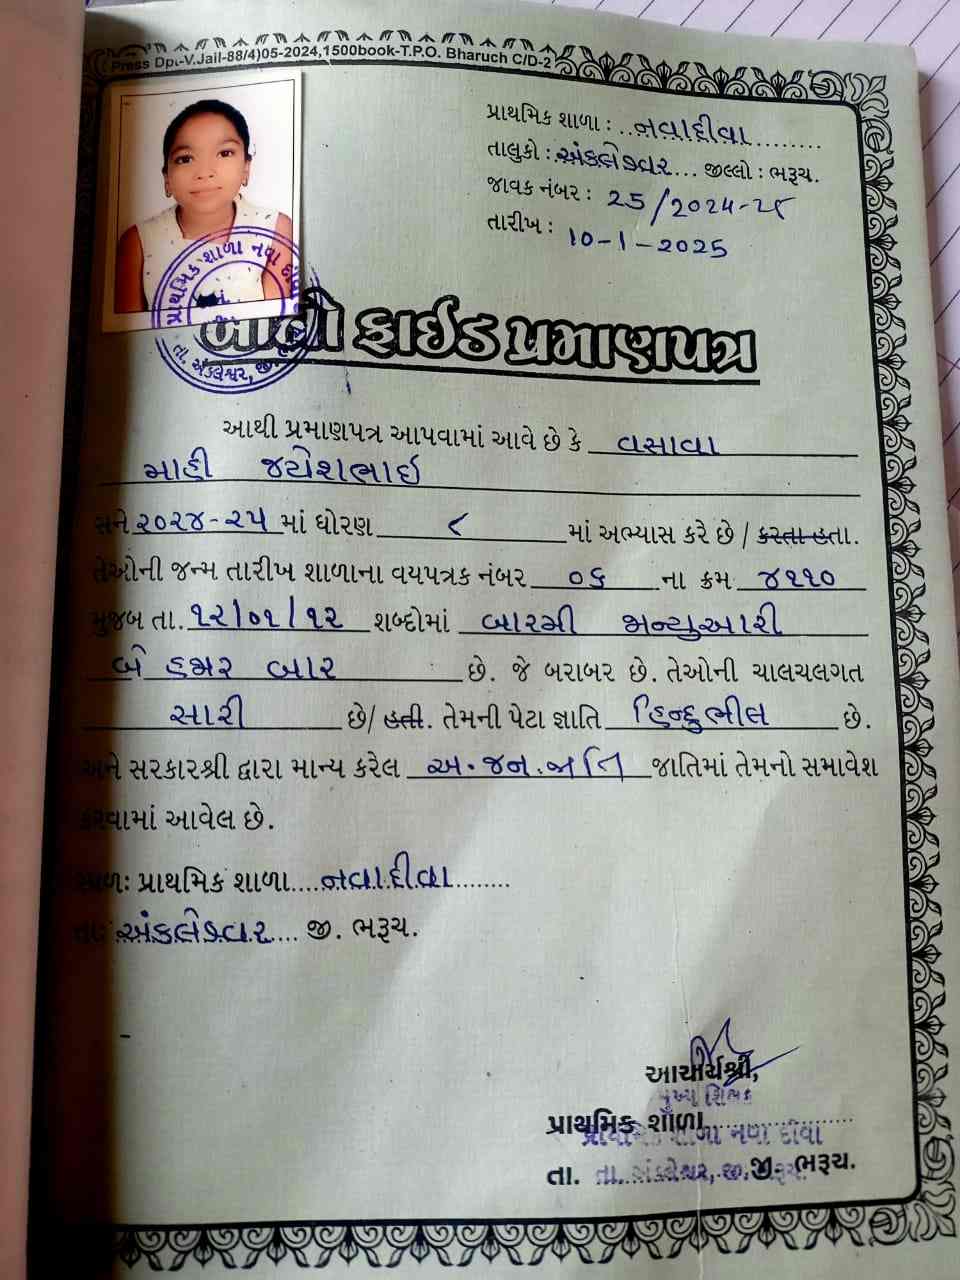 Press Dpt.-V.Jail-88/4)05-2024,1500book-T.P.O. Bharuch C/D-2
પ્રાથમિક શાળા : ..નવાદીવા.........
તાલુકો : અંકલેશ્વર.... જીલ્લો : ભરૂચ.
જાવક નંબર : 25/2024-25
તારીખ : 10-1-2025
પ્રાથમિક શાળા નવા દીવા
તા. અંકલેશ્વર, જી.
બોનો ફાઈડ પ્રમાણપત્ર
આથી પ્રમાણપત્ર આપવામાં આવે છે કે વસાવા
માહી જયેશભાઈ
સને ૨૦૨૪-૨૫ માં ધોરણ ૮ માં અભ્યાસ કરે છે / કરતા હતા.
તેઓની જન્મ તારીખ શાળાના વયપત્રક નંબર ૦૬ ના ક્રમ ૪૧૧૦
મુજબ તા. ૧૨/૦૧/૧૨ શબ્દોમાં બારમી જાન્યુઆરી
બે હજાર બાર છે. જે બરાબર છે. તેઓની ચાલચલગત
સારી છે/ હતી. તેમની પેટા જ્ઞાતિ હિન્દુભીલ છે.
અને સરકારશ્રી દ્વારા માન્ય કરેલ અ.જન.જાતિ જાતિમાં તેમનો સમાવેશ
કરવામાં આવેલ છે.
સ્થળ: પ્રાથમિક શાળા....નવાદીવા........
તા. અંકલેશ્વર.... જી. ભરૂચ.
આચાર્યશ્રી,
મુખ્ય શિક્ષક
પ્રાથમિક શાળા....................
પ્રાથમિક શાળા નવા દીવા
તા. .......... જી. ભરૂચ.
તા. અંકલેશ્વર, જી. ભરૂચ.